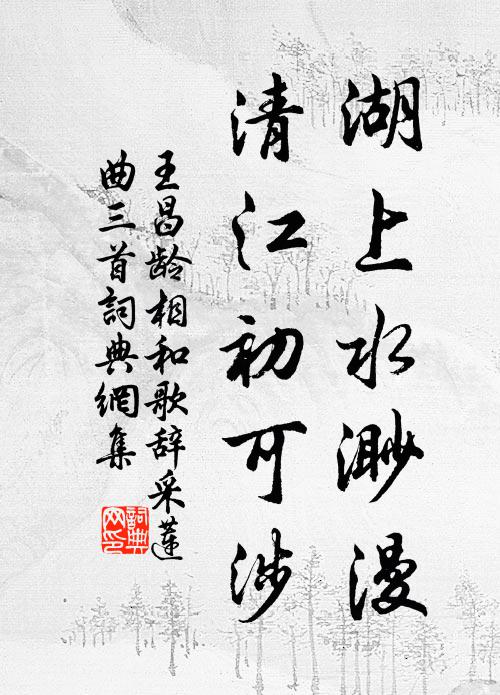 湖上水渺漫
清江初可涉
王昌龄相和歌辞采莲
曲三首詞典網集
詞典
网印